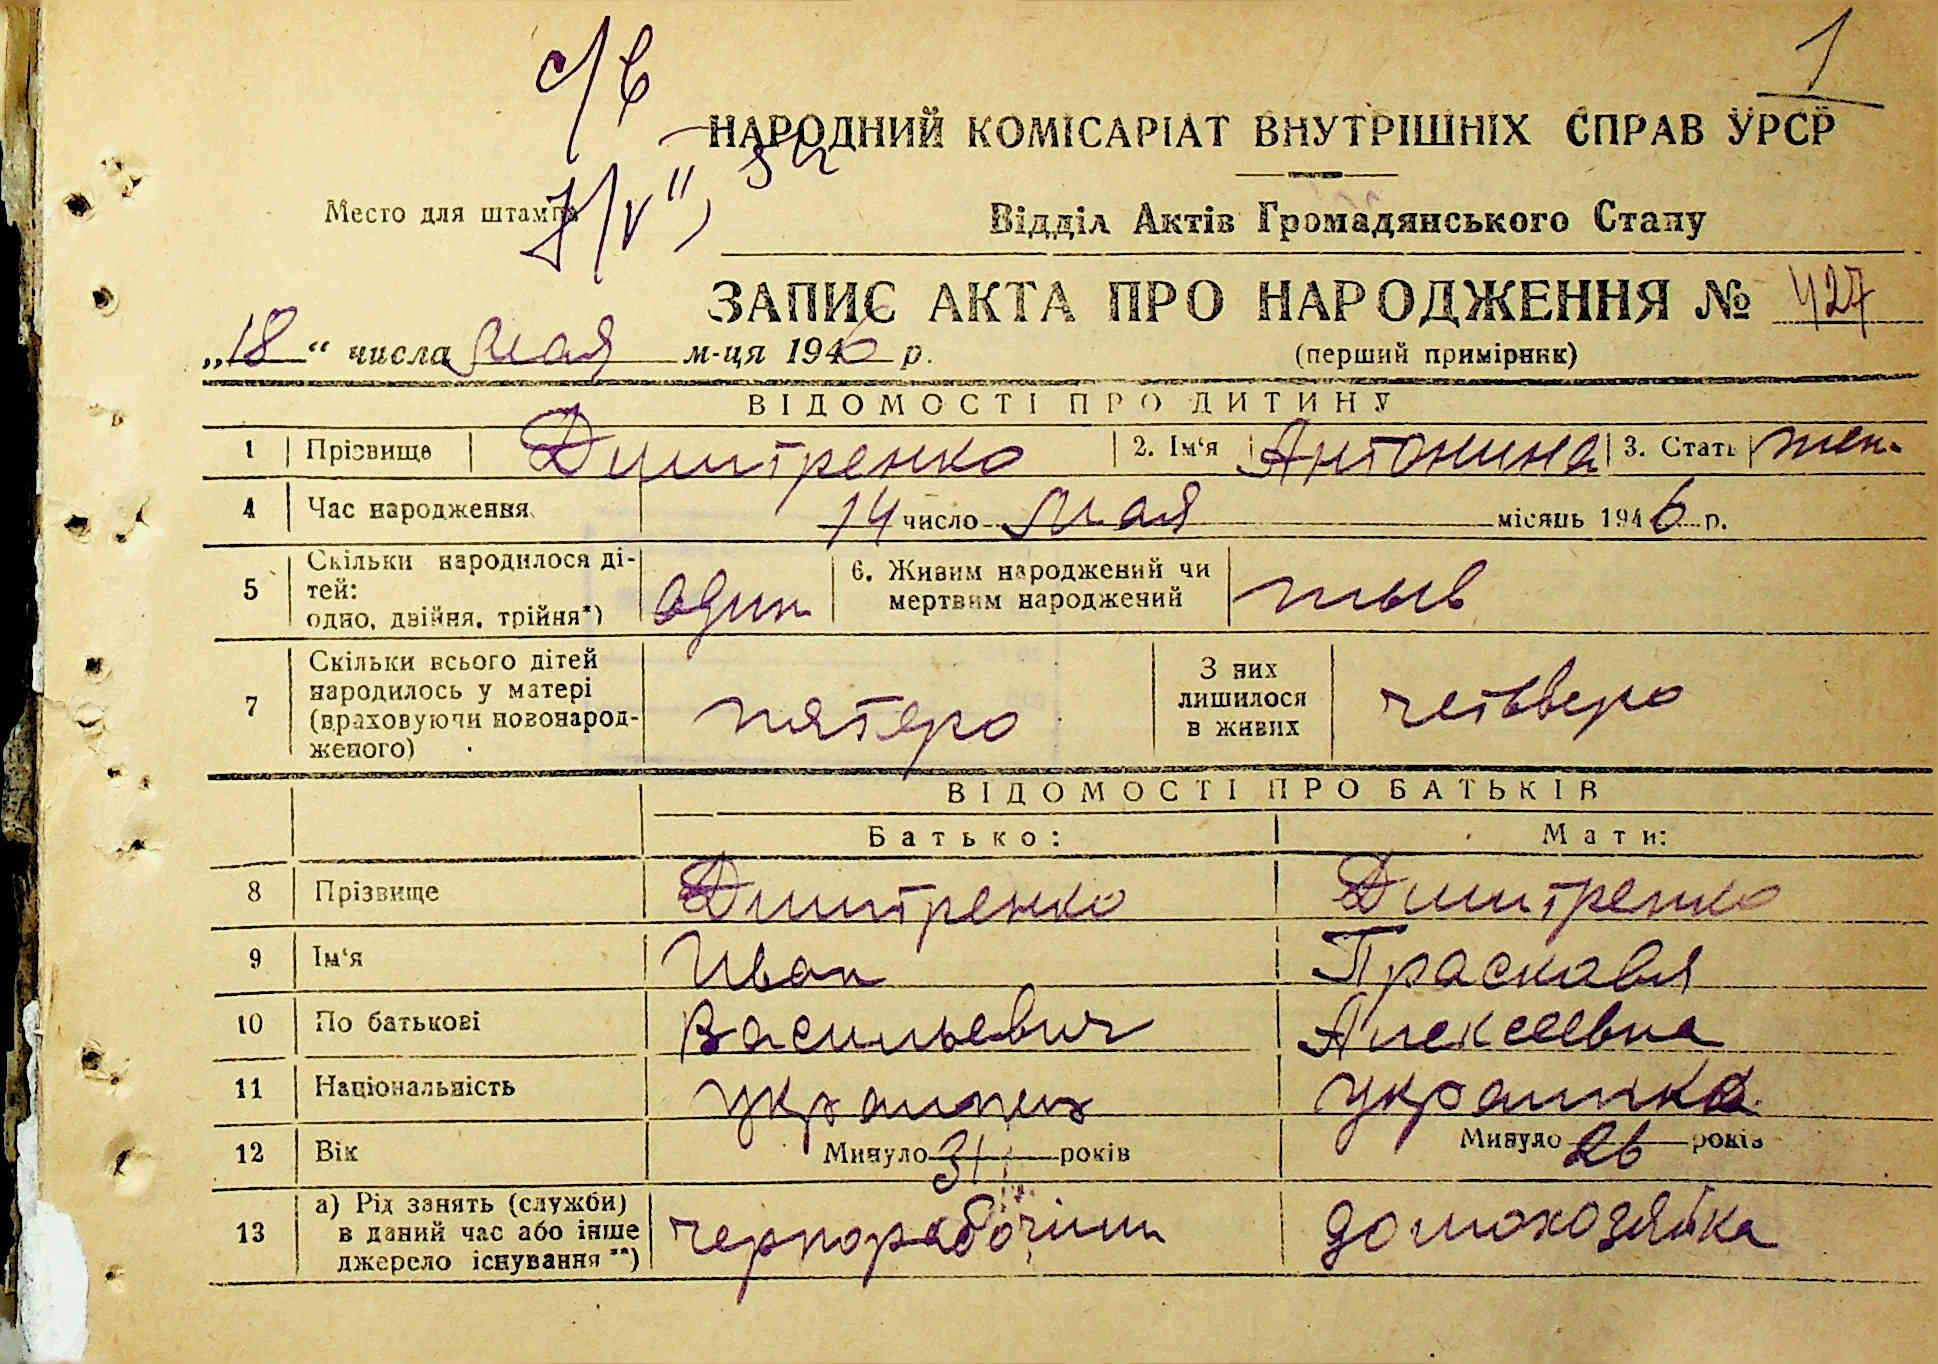 1
с/в
НАРОДНИЙ КОМІСАРІАТ ВНУТРІШНІХ СПРАВ УРСР
Место для штампа
Відділ Актів Громадянського Стану
ЗАПИС АКТА ПРО НАРОДЖЕННЯ № 427
„18“ числа мая м-ця 1946 р.
(перший примірник)
ВІДОМОСТІ ПРО ДИТИНУ
1 Прізвище Дмитренко 2. Ім‘я Антонина 3. Стать жен.
4 Час народження 14 число мая місяць 1946 р.
5 Скільки народилося ді-
тей:
одно, двійня, трійня*) один 6. Живим народжений чи
мертвим народжений жыв
7 Скільки всього дітей
народилось у матері
(враховуючи новонарод-
женого) пятеро З них
лишилося
в живих четверо
ВІДОМОСТІ ПРО БАТЬКІВ
Батько: Мати:
8 Прізвище Дмитренко Дмитренко
9 Ім‘я Иван Прасковя
10 По батькові Васильевич Алексеевна
11 Національність украинец украинка
12 Вік Минуло 31 років Минуло 26 років
13 а) Рід занять (служби)
в даний час або інше
джерело існування **) чернорабочим домохозяйка